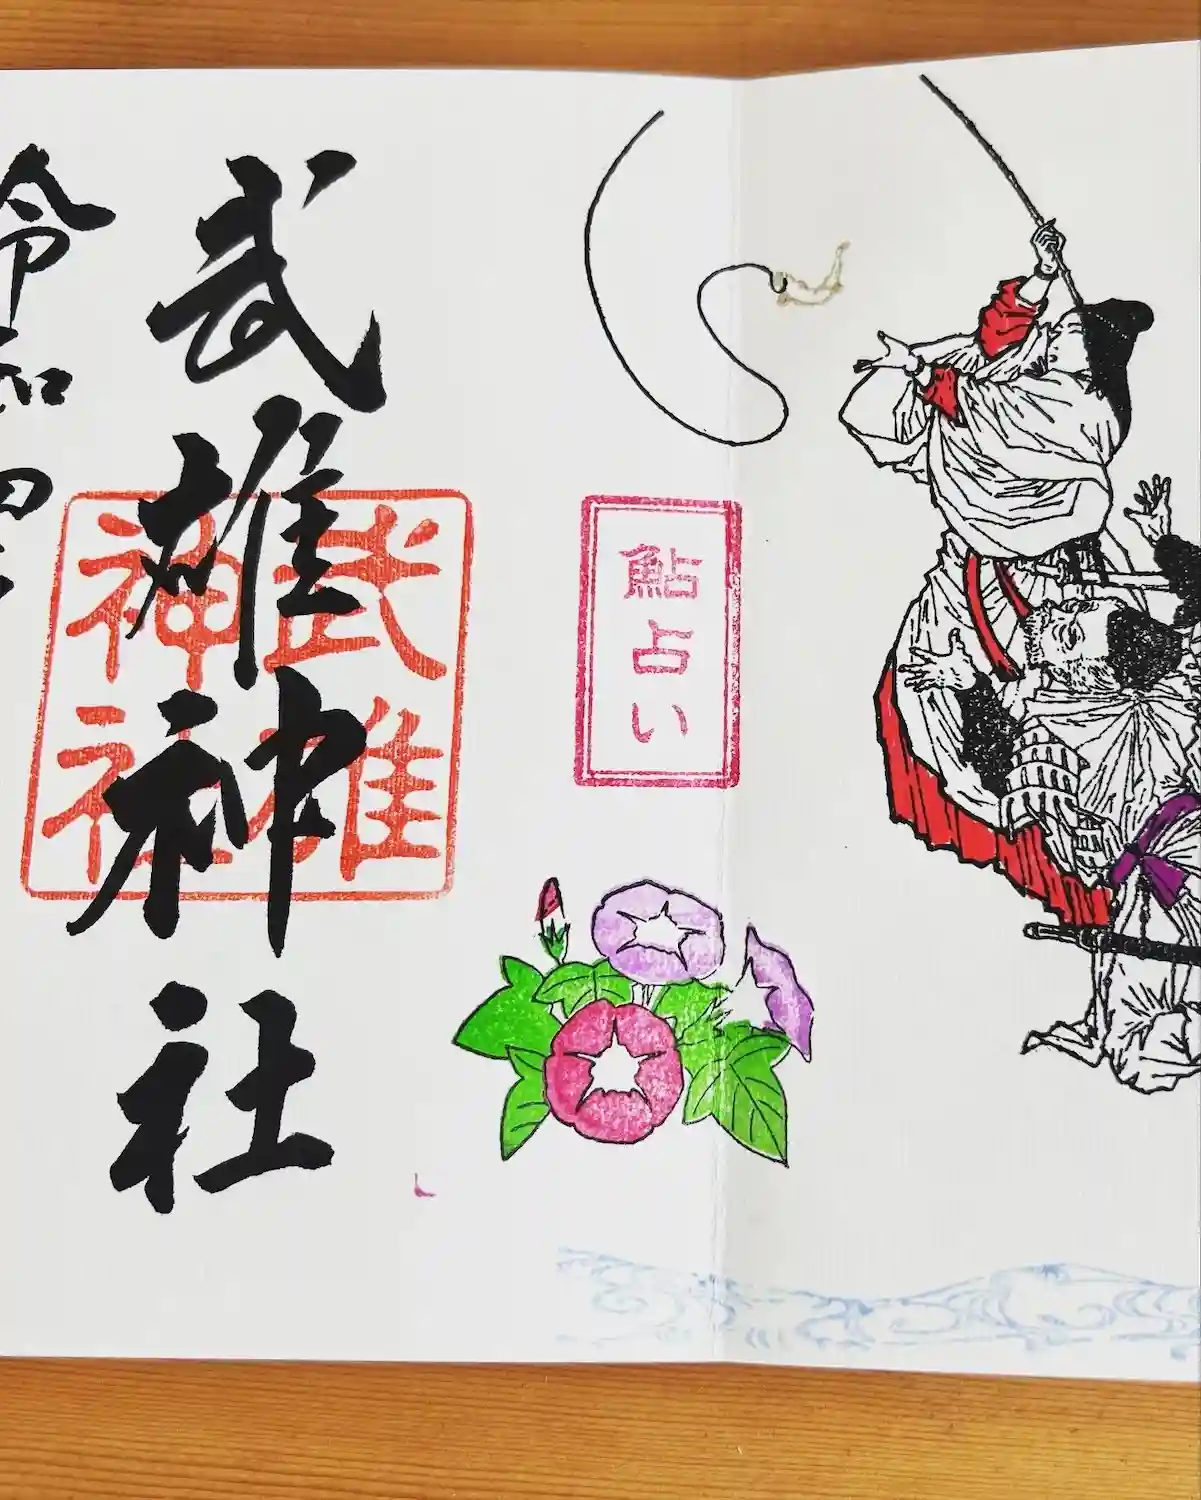 鮎占い
武雄神社
武雄神社
令和四